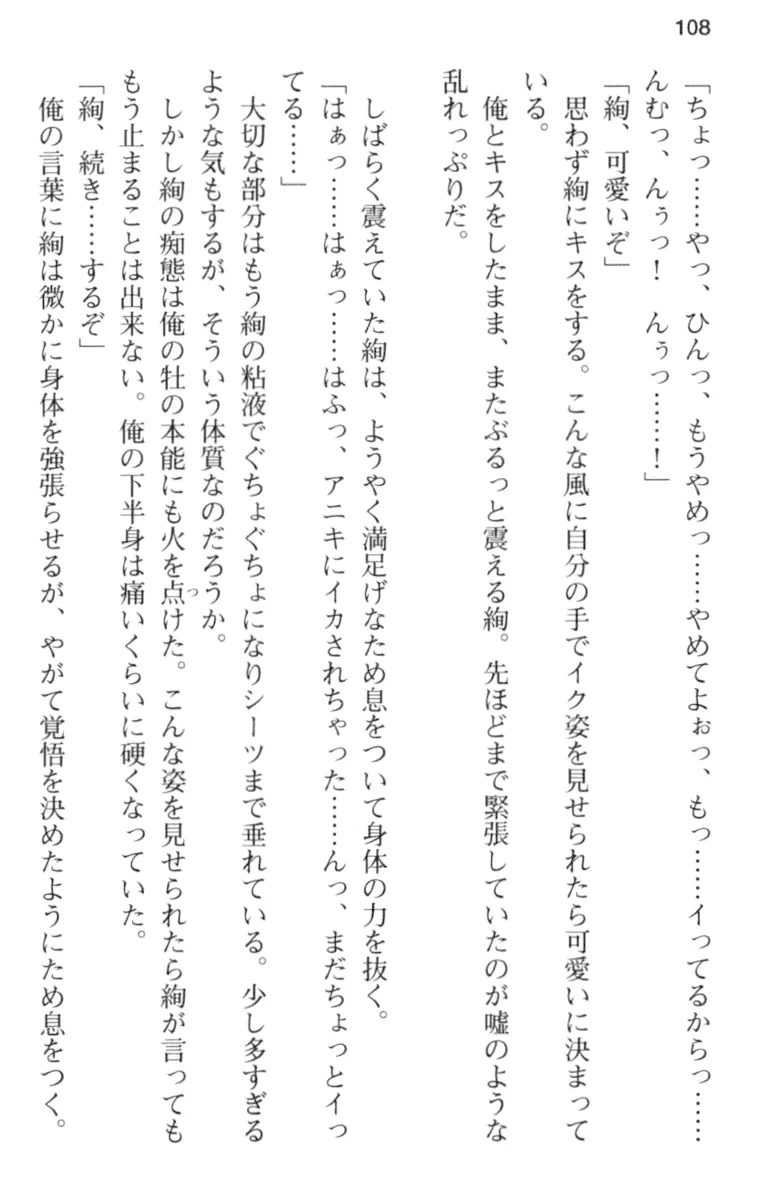 108
「ちょっ……やっ、ひんっ、もうやめっ……やめてよぉっ、もっ……イってるからっ……
んむっ、んぅっ！　んぅっ……！」
「絢、可愛いぞ」
思わず絢にキスをする。こんな風に自分の手でイク姿を見せられたら可愛いに決まって
いる。
俺とキスをしたまま、またぶるっと震える絢。先ほどまで緊張していたのが嘘のような
乱れっぷりだ。
しばらく震えていた絢は、ようやく満足げなため息をついて身体の力を抜く。
「はぁっ……はぁっ……はふっ、アニキにイカされちゃった……んっ、まだちょっとイっ
てる……」
大切な部分はもう絢の粘液でぐちょぐちょになりシーツまで垂れている。少し多すぎる
ような気もするが、そういう体質なのだろうか。
しかし絢の痴態は俺の牡の本能にも火を点けた。こんな姿を見せられたら絢が言っても
もう止まることは出来ない。俺の下半身は痛いくらいに硬くなっていた。
「絢、続き……するぞ」
俺の言葉に絢は微かに身体を強張らせるが、やがて覚悟を決めたようにため息をつく。